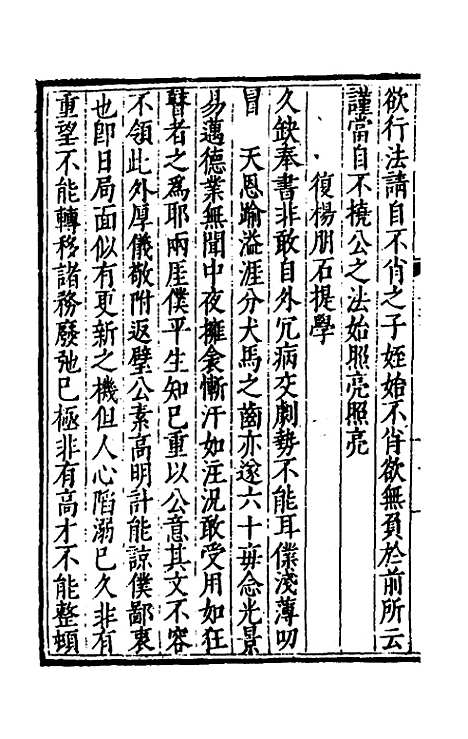 欲行法請自不肖之子姪始不肖欲無負於前所云
謹當自不撓公之法始照亮照亮
復楊朋石提學
久缺奉書非敢自外冗病交劇勢不能耳僕淺薄叨
冒　天恩踰溢涯分犬馬之齒亦遂六十每念光景
易邁德業無聞中夜擁衾慚汗如注況敢受用如狂
瞽者之爲耶兩厓僕平生知已重以公意其文不容
不領此外厚儀敬附返璧公素高明計能諒僕鄙衷
也即日局面似有更新之機但人心陷溺已久非有
重望不能轉移諸務廢弛已極非有高才不能整頓